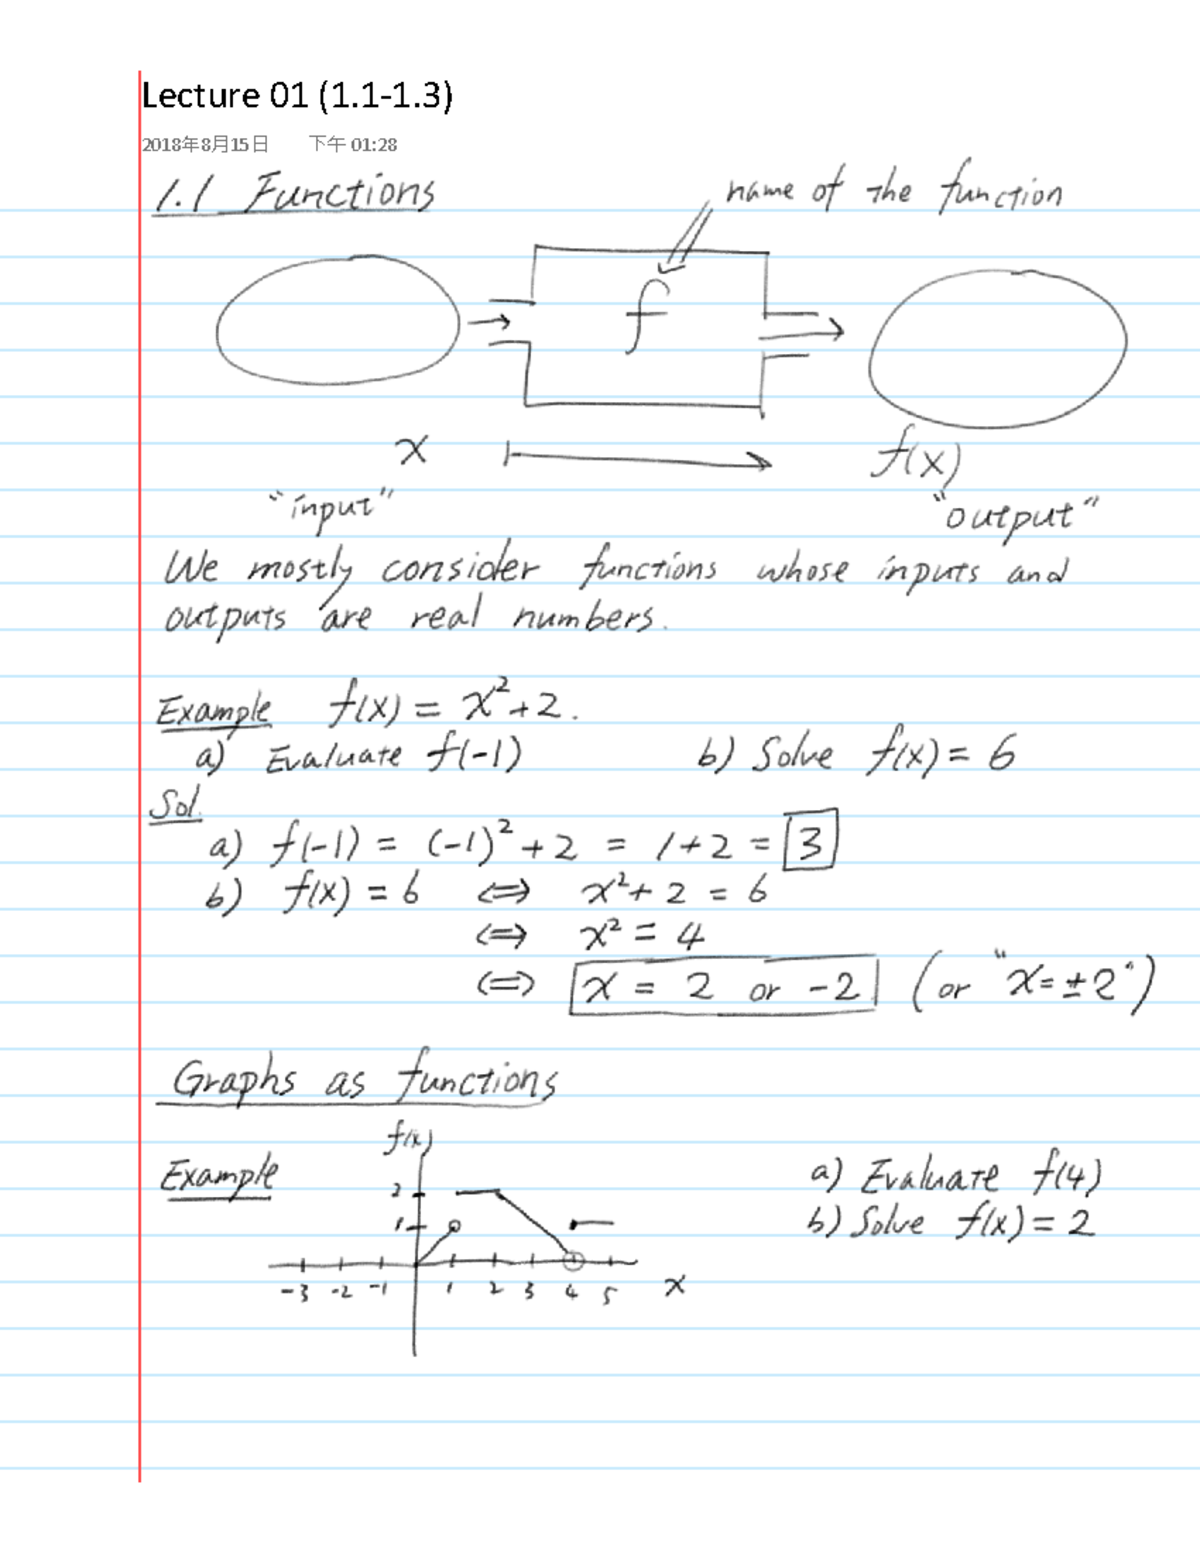 Lecture 01 (1.1-1.3)
2018年8月15日 下午 01:28
1.1 Functions
name of the function
f
x f(x)
"input" "output"
We mostly consider functions whose inputs and
outputs are real numbers.
Example f(x) = x²+2.
a) Evaluate f(-1) b) Solve f(x) = 6
Sol.
a) f(-1) = (-1)² + 2 = 1+2 = 3
b) f(x) = 6 ⇔ x²+ 2 = 6
⇔ x² = 4
⇔ x = 2 or -2 (or "x=±2")
Graphs as functions
f(x)
Example a) Evaluate f(4)
2
1 b) Solve f(x) = 2
-3 -2 -1 1 2 3 4 5 x